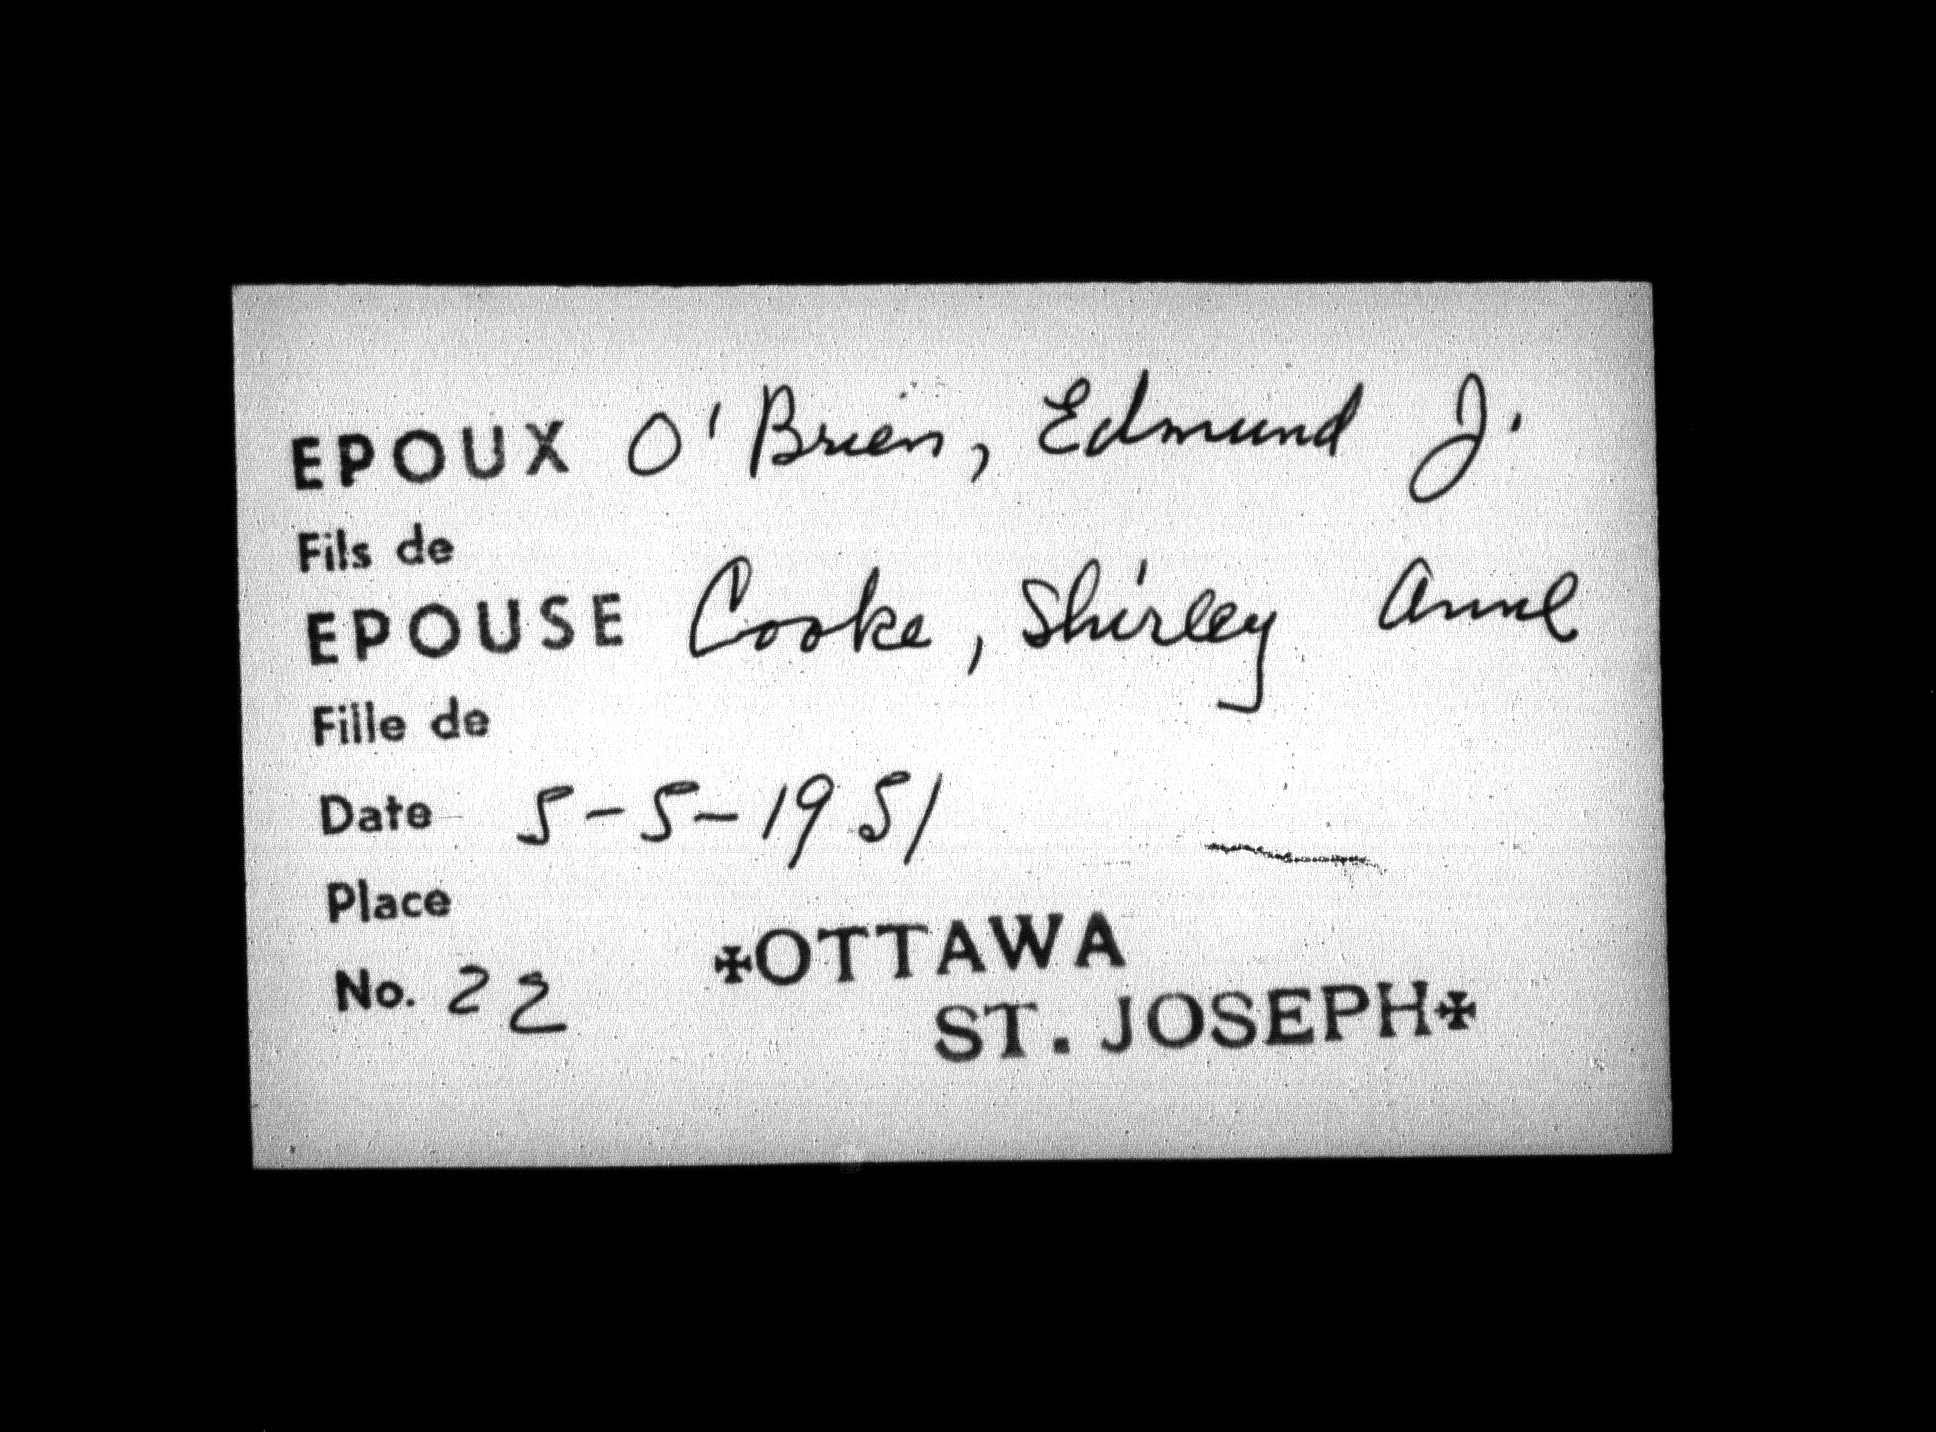 EPOUX O'Brien, Edmund J.
Fils de
EPOUSE Cooke, Shirley Anne
Fille de
Date 5-5-1951
Place
✠OTTAWA
No. 22
ST. JOSEPH✠